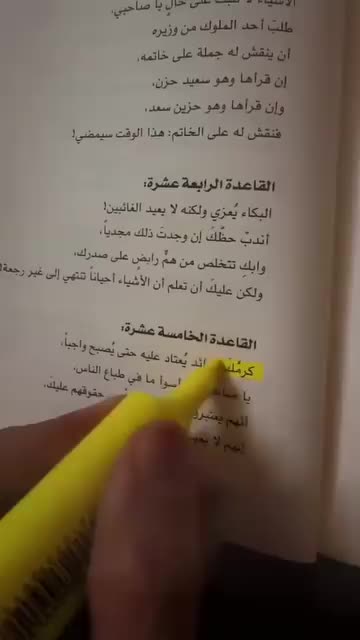 الأشياء لا تثبت على حالٍ يا صاحبي.
طلبَ أحد الملوك من وزيره
أن ينقش له جملة على خاتمه،
إن قرأها وهو سعيد حزن،
وإن قرأها وهو حزين سعد،
فنقش له على الخاتم: هذا الوقت سيمضي!
القاعدة الرابعة عشرة:
البكاء يُعزي ولكنه لا يعيد الغائبين!
أندبْ حظّكَ إن وجدتَ ذلك مجدياً،
وابكِ تتخلص من همٍّ رابضٍ على صدرك،
ولكن عليكَ أن تعلم أن الأشياء أحياناً تنتهي إلى غير رجعة!
القاعدة الخامسة عشرة:
كرمُكَ ائد يُعتاد عليه حتى يُصبح واجباً،
يا ما في طباع الناس،
أنهم حقوقهم عليكَ،
إنهم لا